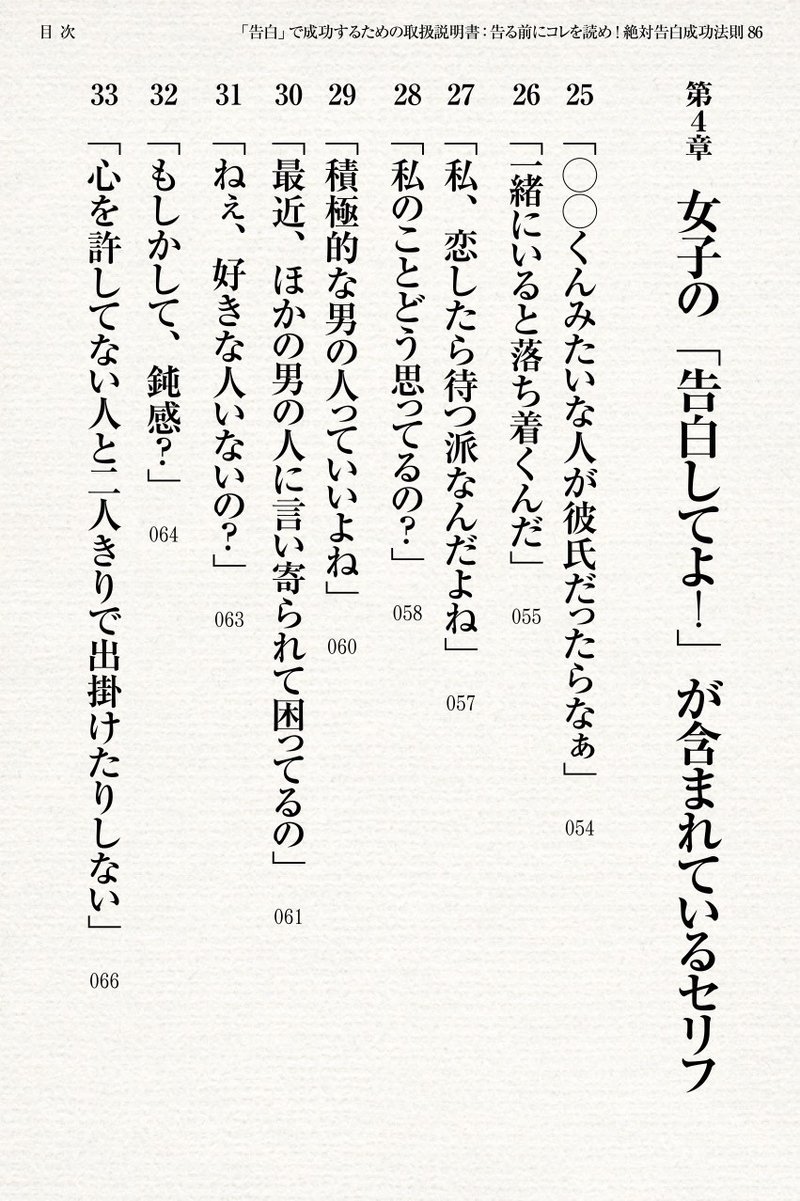 目次
「告白」で成功するための取扱説明書：告る前にコレを読め！絶対告白成功法則 86
第4章 女子の「告白してよ！」が含まれているセリフ
25 「○○くんみたいな人が彼氏だったらなぁ」 054
26 「一緒にいると落ち着くんだ」 055
27 「私、恋したら待つ派なんだよね」 057
28 「私のことどう思ってるの？」 058
29 「積極的な男の人っていいよね」 060
30 「最近、ほかの男の人に言い寄られて困ってるの」 061
31 「ねぇ、好きな人いないの？」 063
32 「もしかして、鈍感？」 064
33 「心を許してない人と二人きりで出掛けたりしない」 066